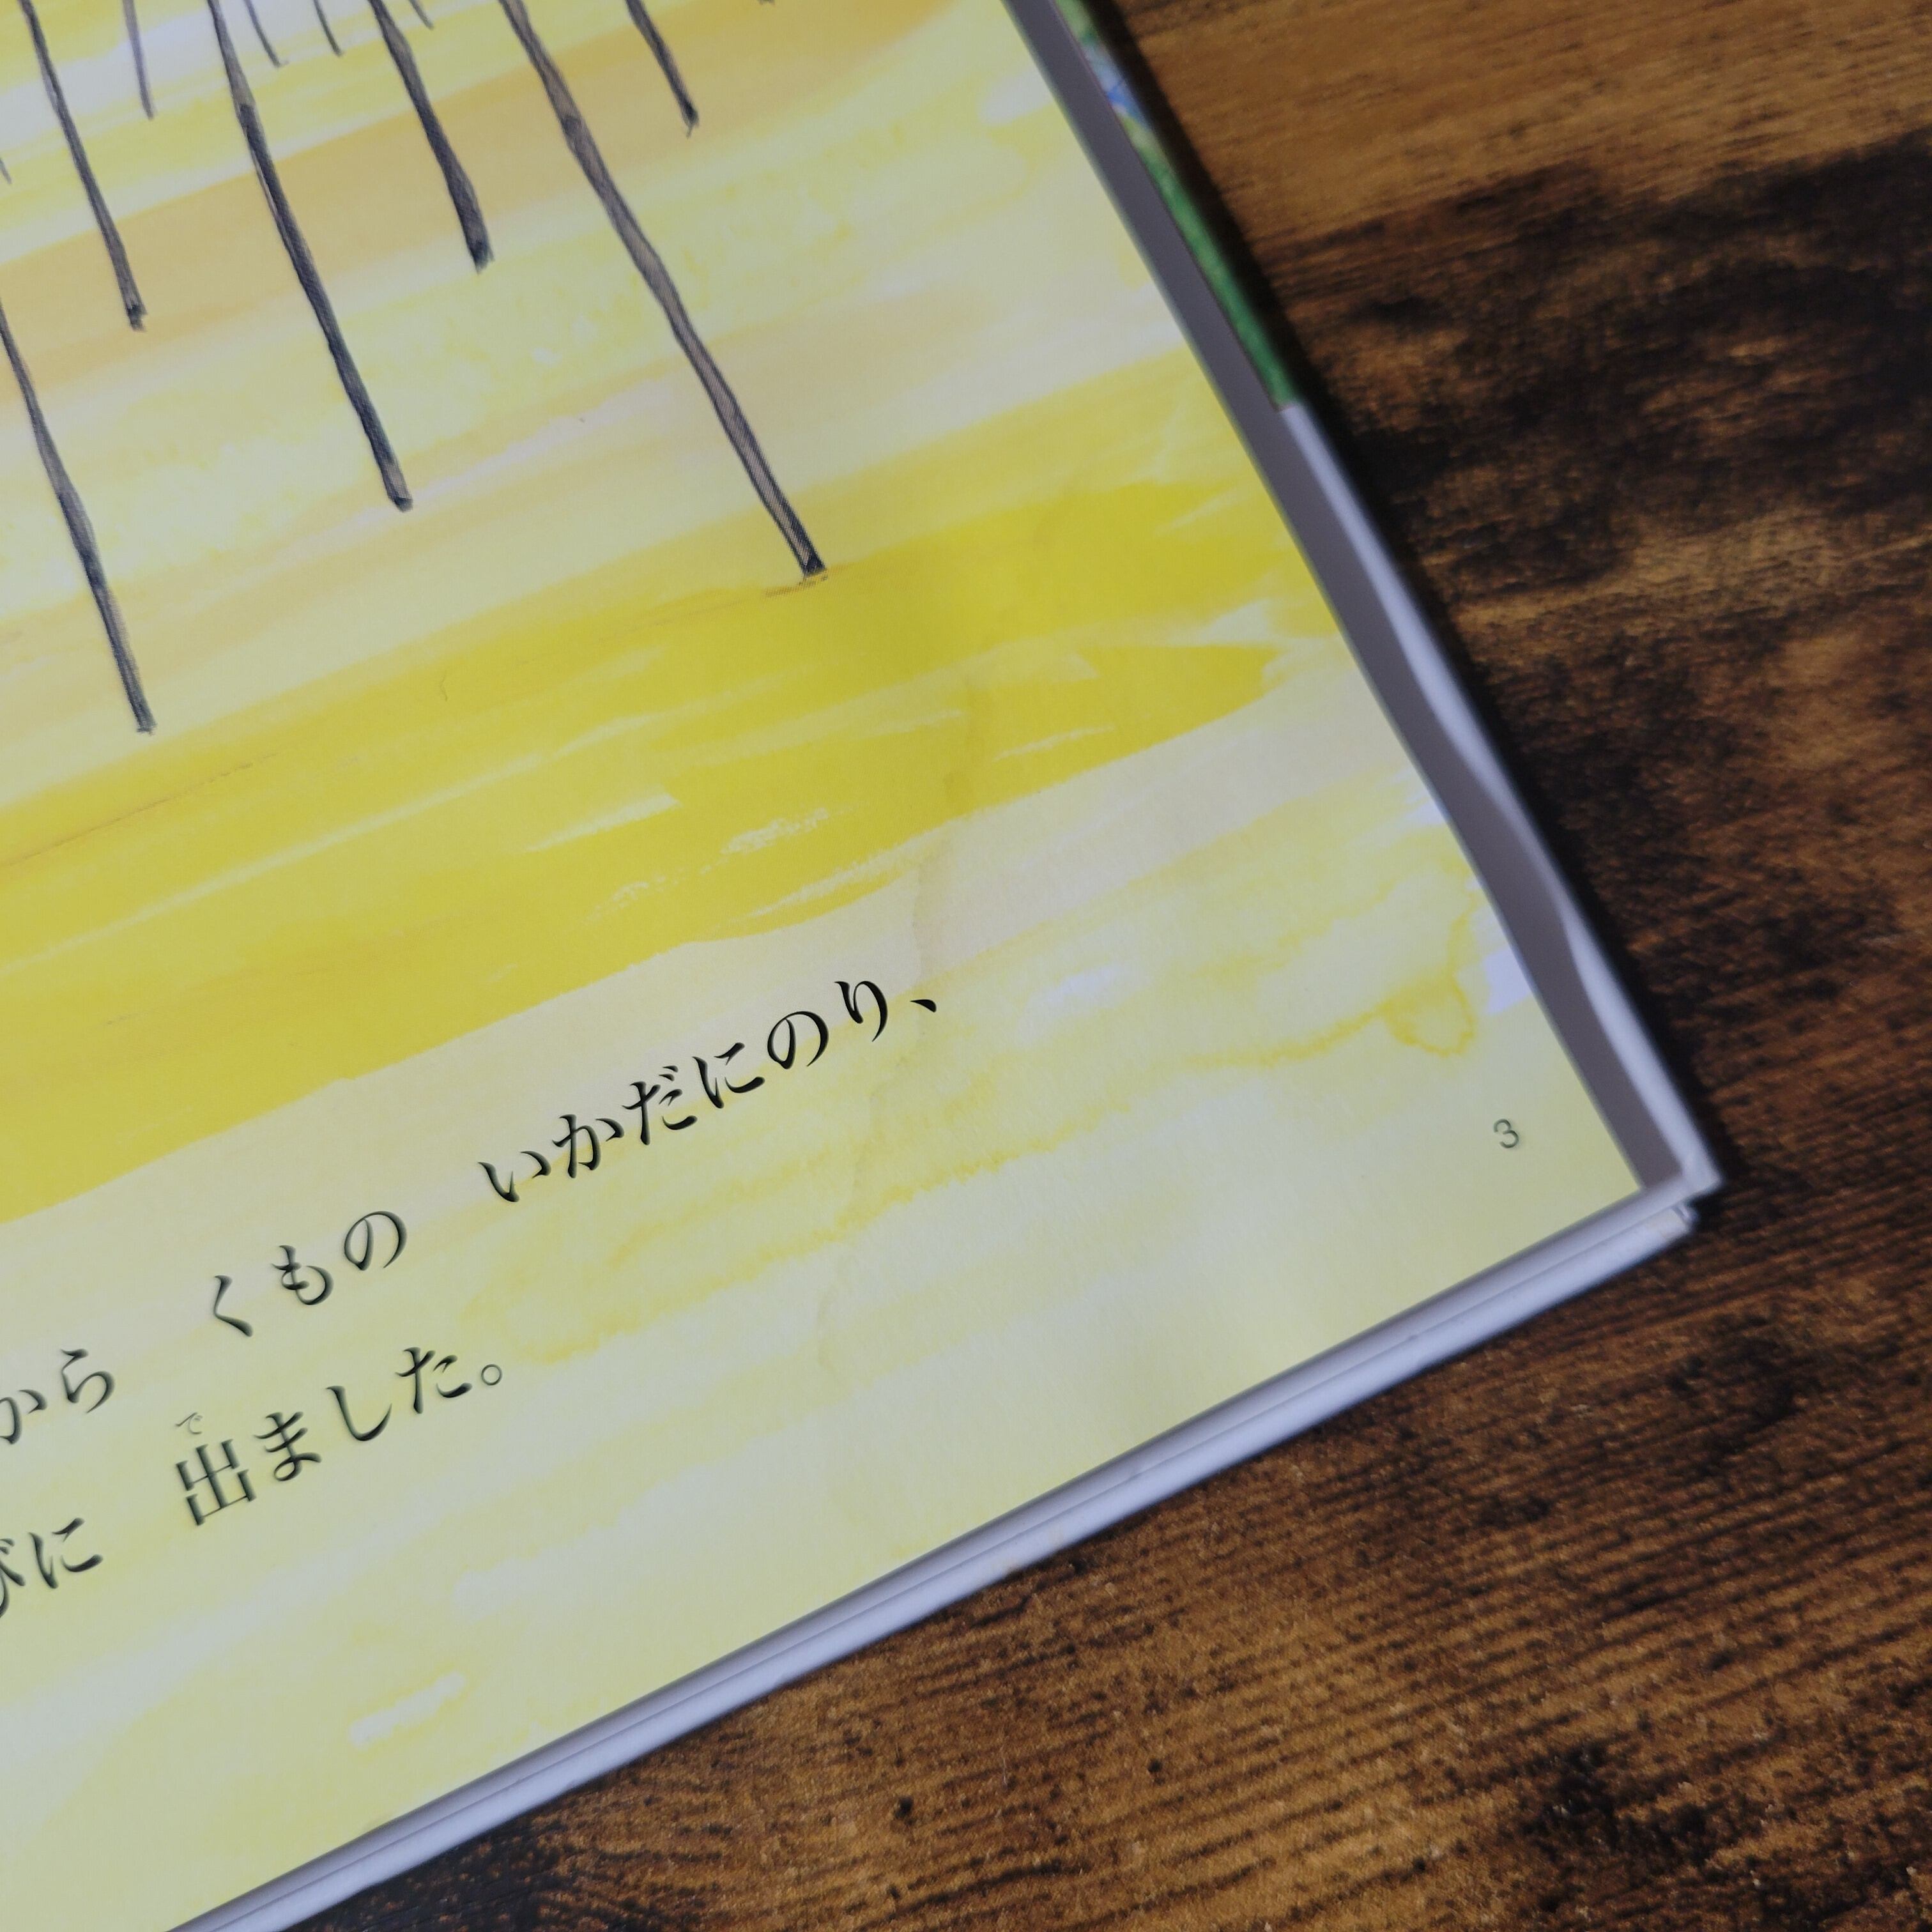 から　くもの　いかだにのり、
で
びに　出ました。
3